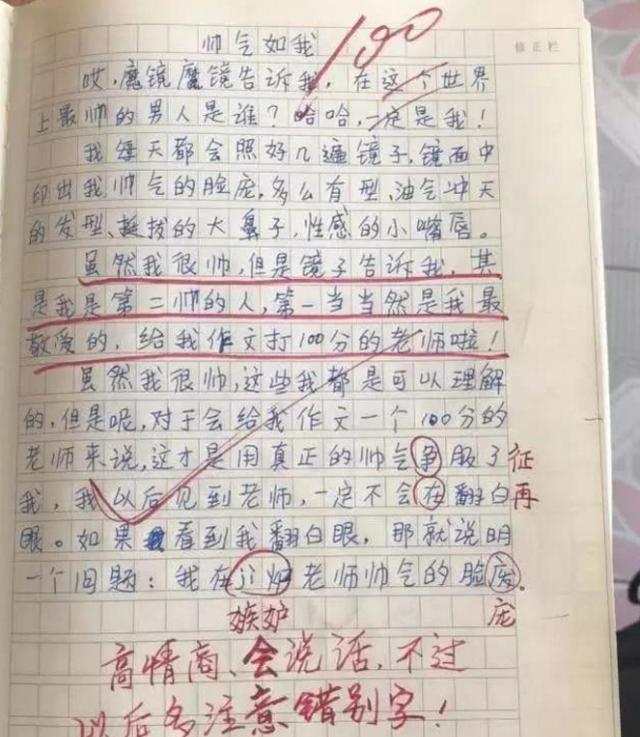 帅气如我
100
修正栏
哎,魔镜魔镜告诉我,在这个世界
上最帅的男人是谁?哈哈,一定是我!
我每天都会照好几遍镜子,镜面中
印出我帅气的脸庞,多么有型,油气冲天
的发型、挺拔的大鼻子,性感的小嘴唇。
虽然我很帅,但是镜子告诉我,其
是我是第二帅的人,第一当当然是我最
敬爱的,给我作文打100分的老师啦!
虽然我很帅,这些我都是可以理解
的,但是呢,对于会给我作文一个100分的
老师来说,这才是用真正的帅气争服了 征
我,我以后见到老师,一定不会在翻白 再
眼。如果看到我翻白眼,那就说明
一个问题:我在老师帅气的脸
嫉妒 庞
高情商、会说话,不过
以后多注意错别字!